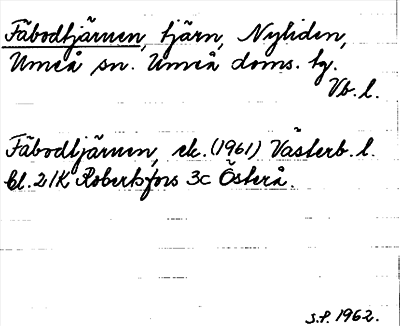 Fäbodtjärnen, tjärn, Nyliden,
Umeå sn. Umeå doms. tg.
Vb. l.
Fäbodtjärnen, ek. (1961) Västerb. l.
bl. 21K Robertsfors 3c Österå.
S.P. 1962.